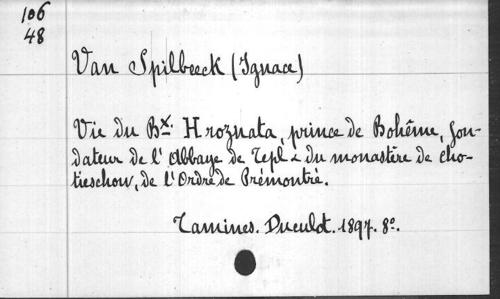 106
48
Van Spilbeeck (Ignace)
Vie du Bx. Hroznata, prince de Bohême, fon-
dateur de l'Abbaye de Tepl & du monastère de cho-
tieschow, de l'Ordre de Prémontré.
Tamines. Duculot. 1897. 8o.